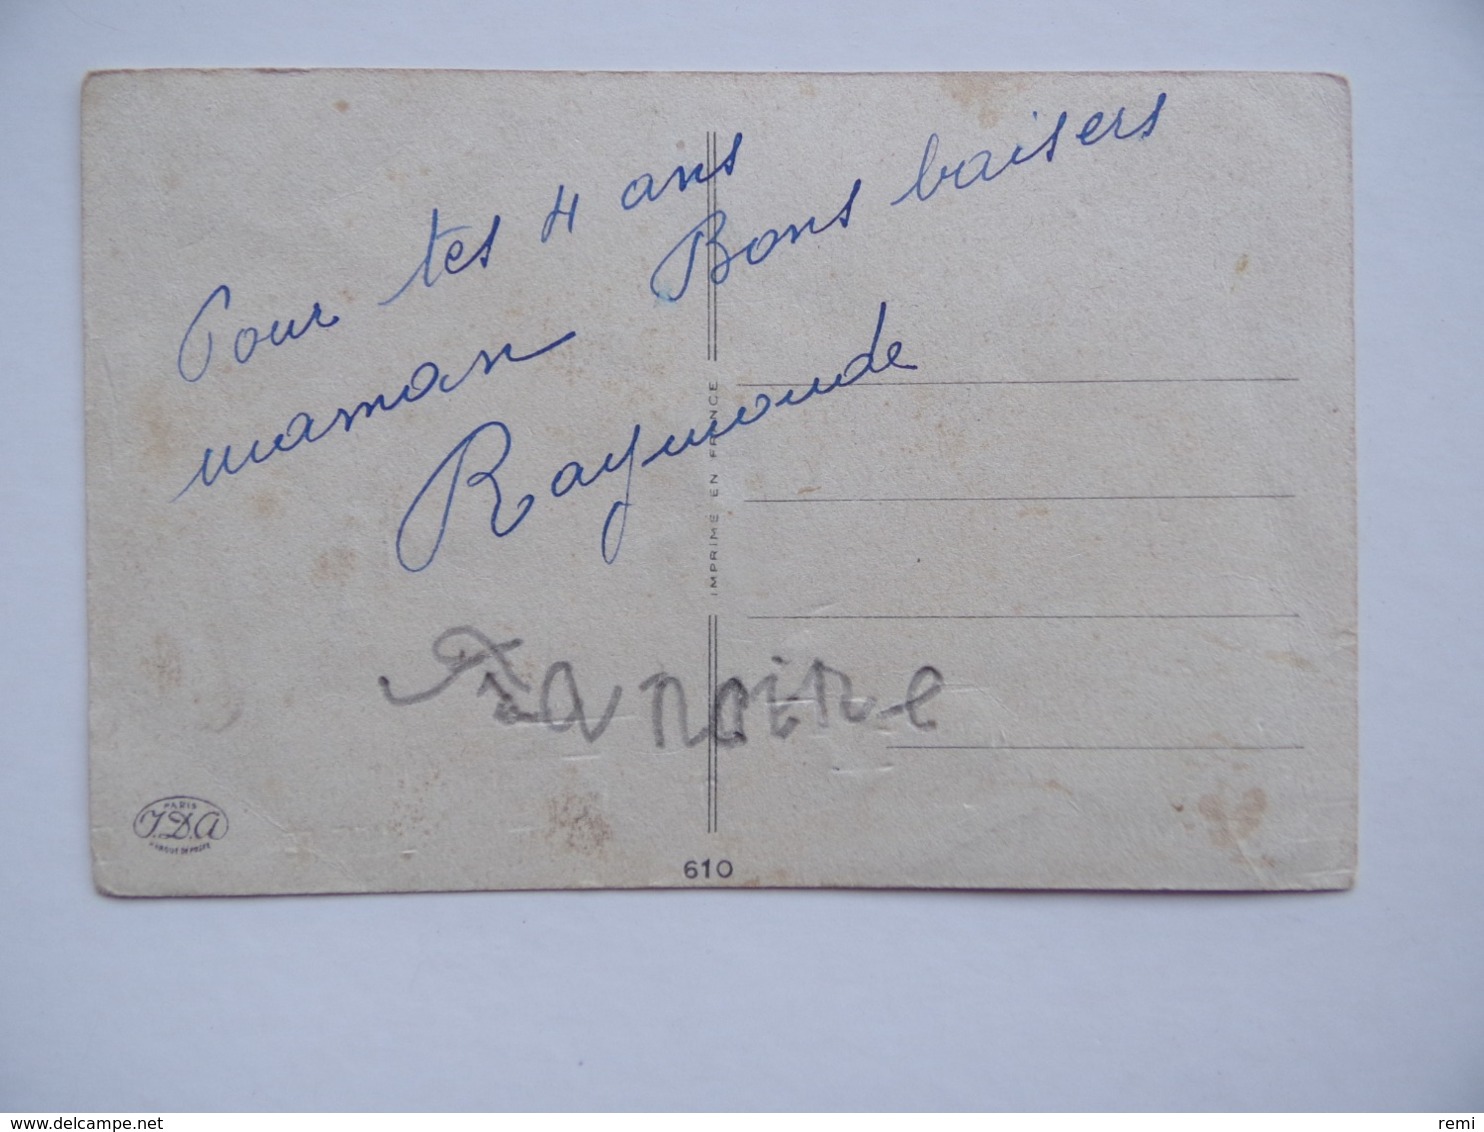 Pour tes 4 ans
maman Bons baisers
Raymonde
IMPRIME EN FRANCE
PARIS
J.D.A
610
www.delcampe.net
remi